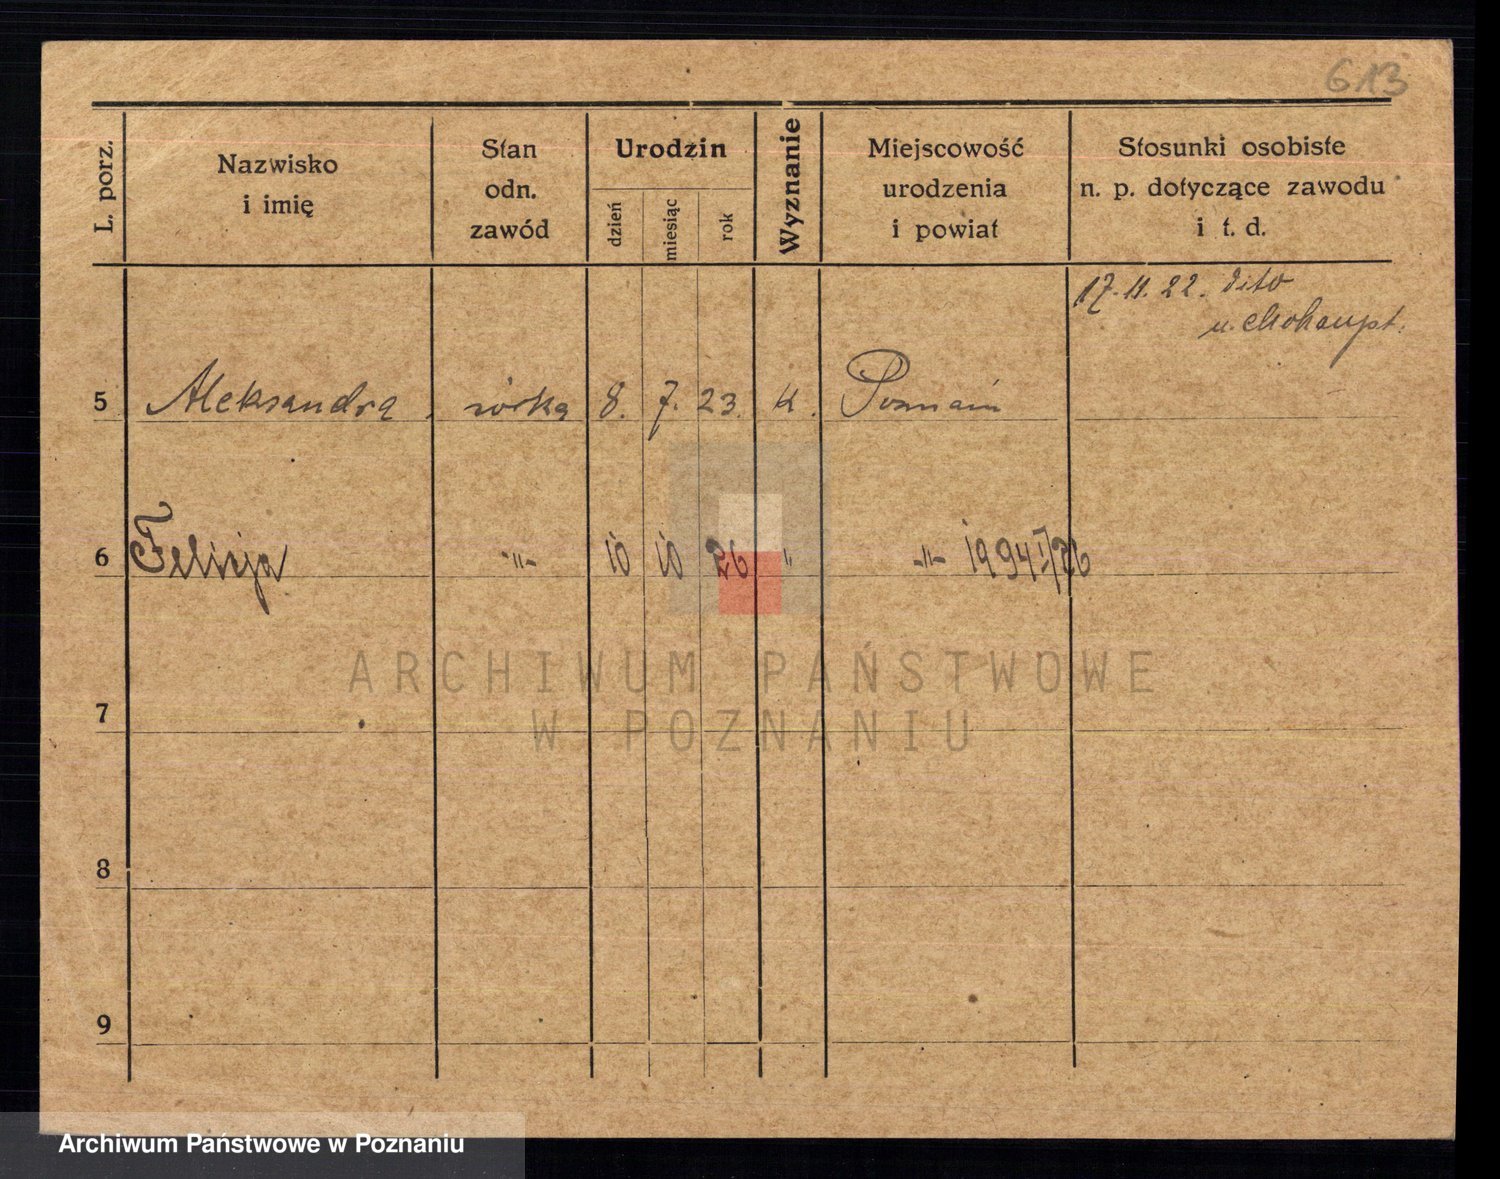 613
L. porz.
Nazwisko
i imię
Stan
odn.
zawód
Urodzin
dzień
miesiąc
rok
Wyznanie
Miejscowość
urodzenia
i powiat
Stosunki osobiste
n. p. dotyczące zawodu
i t. d.
17.11.22. dito
u.
5 Aleksandra córka 8. 7. 23. K. Poznań
6 Felicja -"- 10 10 26 " -"- 1994 I/26
ARCHIWUM PAŃSTWOWE
W POZNANIU
7
8
9
Archiwum Państwowe w Poznaniu